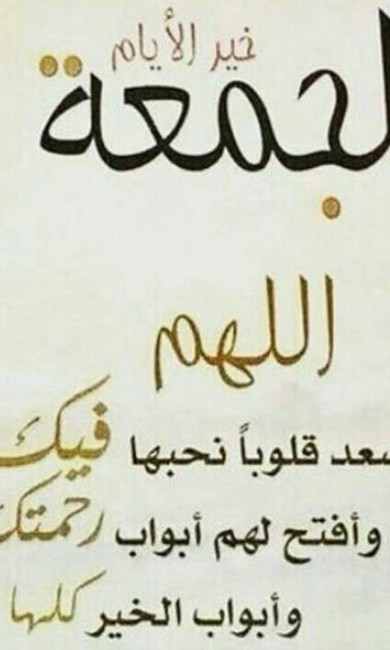 خير الأيام
لجمعة
اللهم
سعد قلوباً نحبها فيك
وأفتح لهم أبواب رحمتك
وأبواب الخير كلها